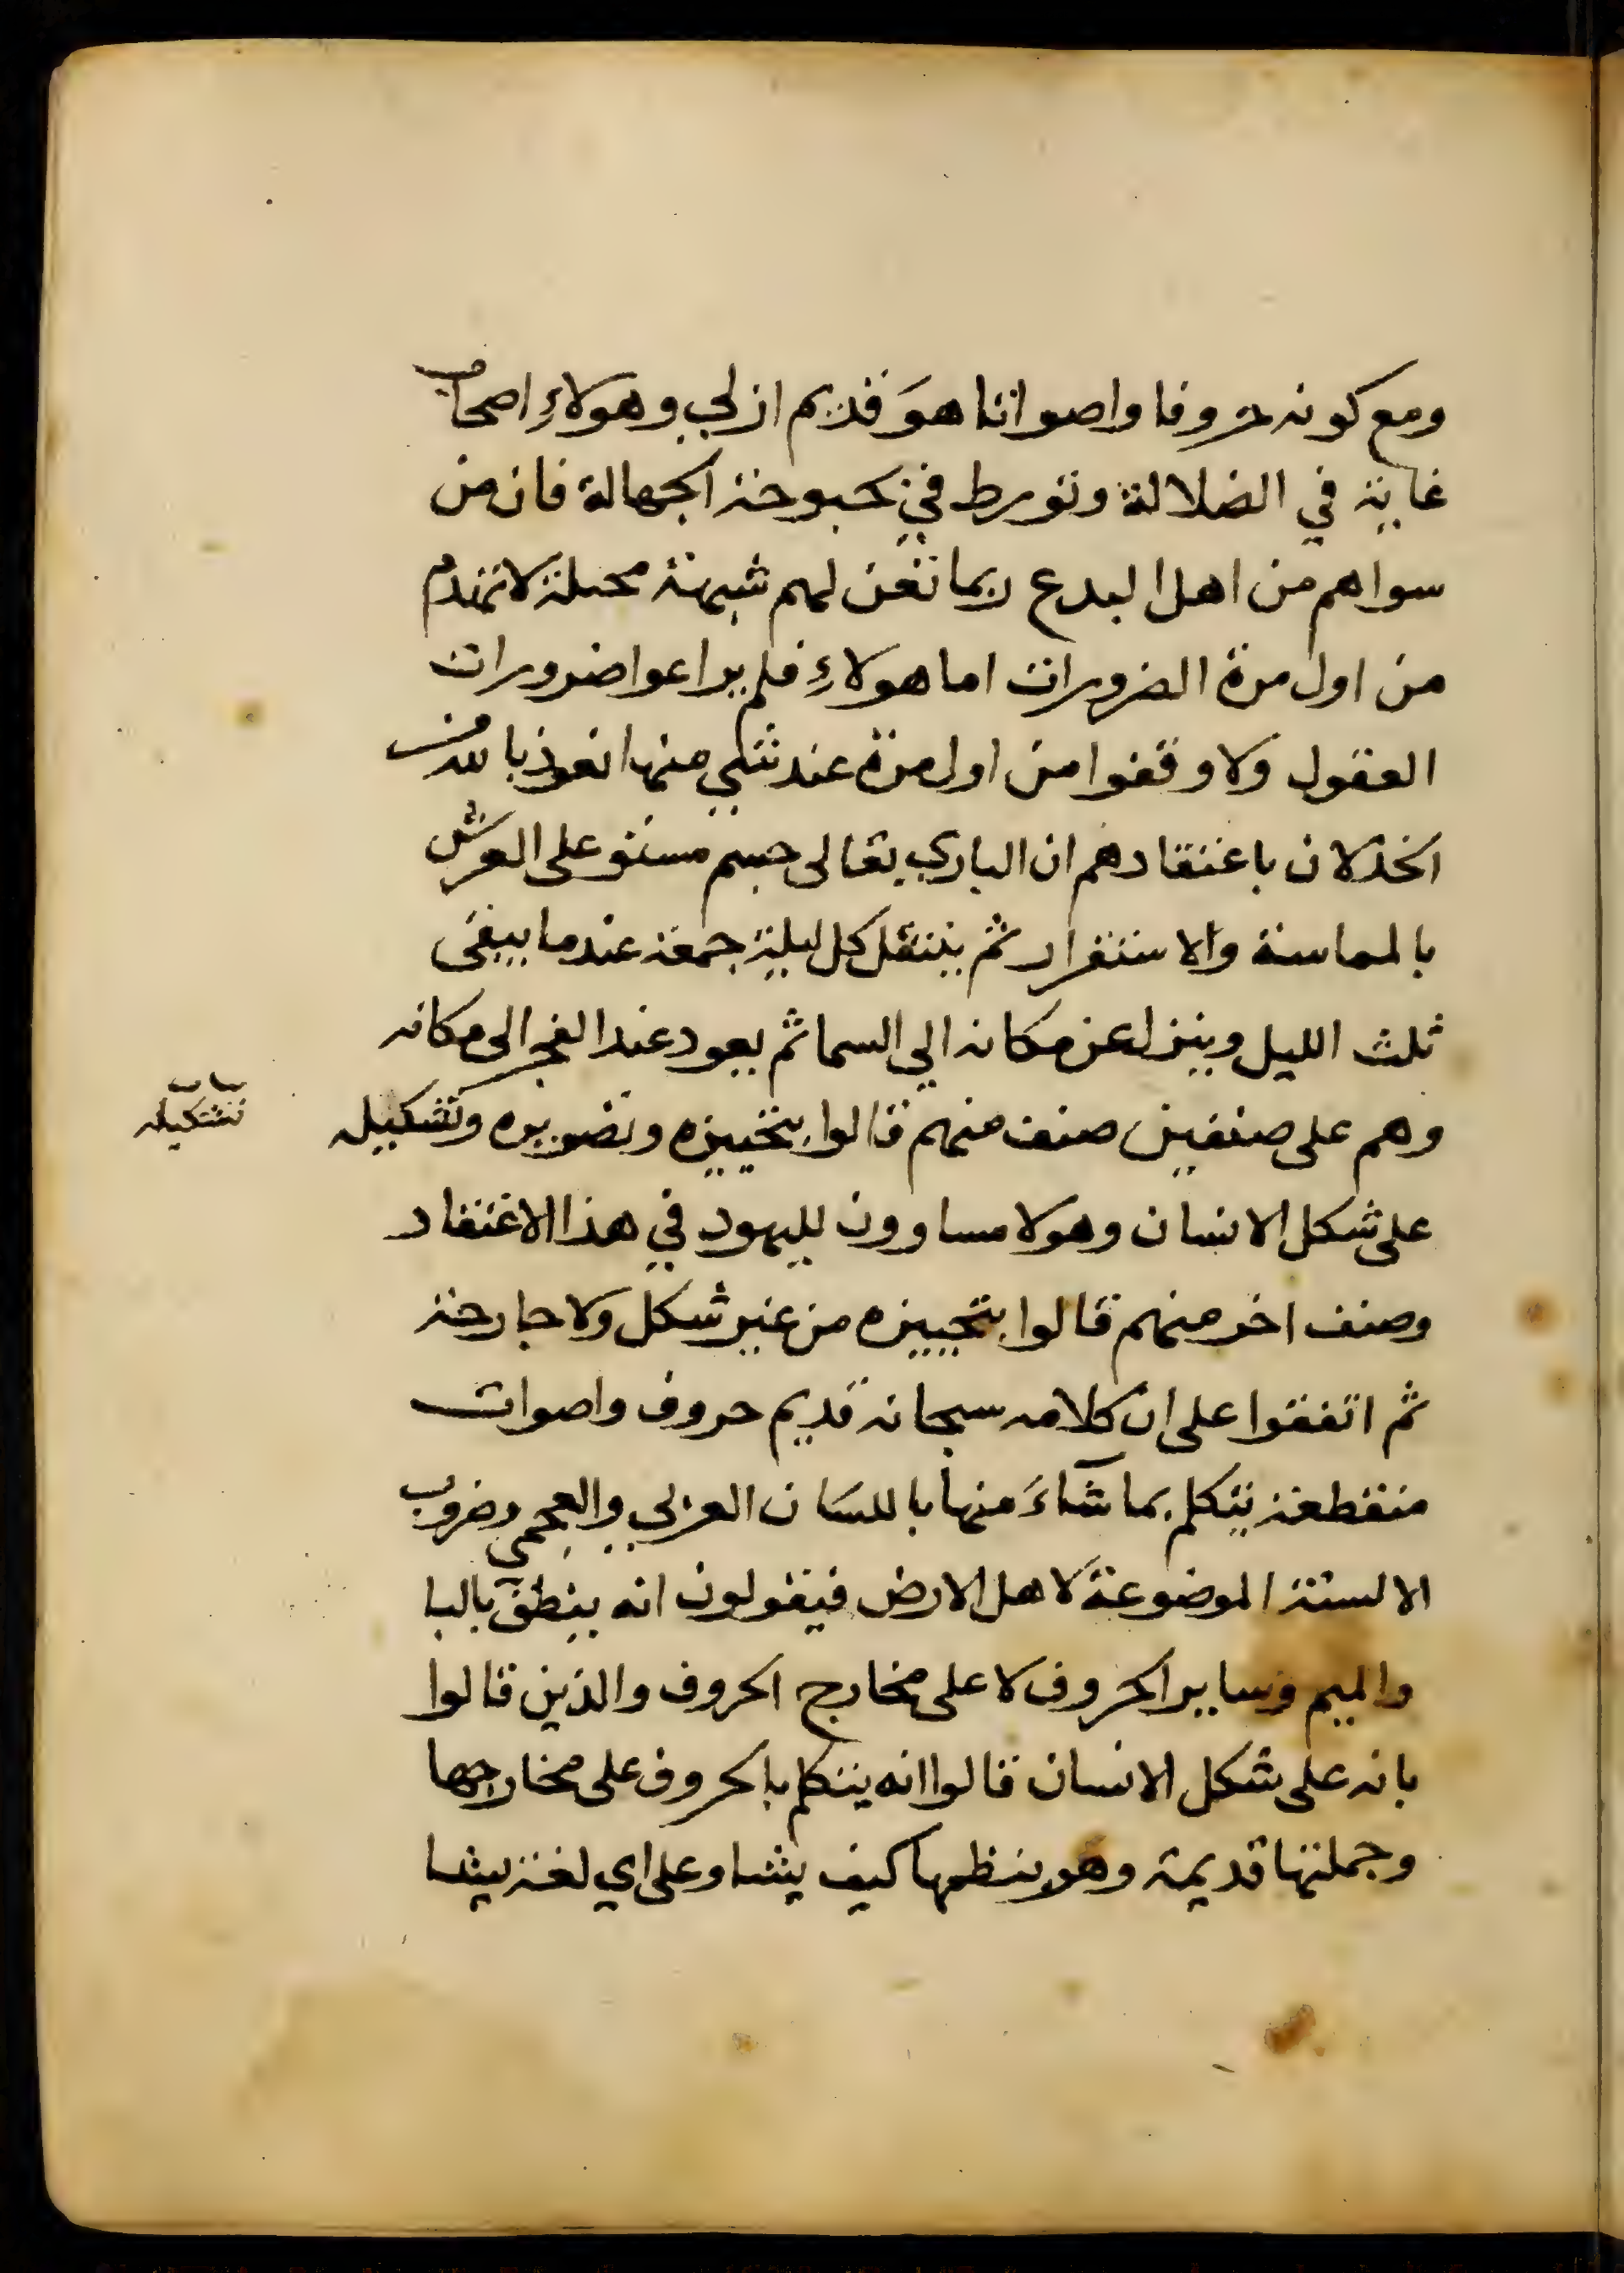 ومع كونه حروفا واصواتا هوَ قديم ازلي وهولاءِ اصحاب
غاية في الضلالة وتورط في بحبوحة الجهالة فان من
سواهم من اهل البدع ربما تعن لهم شبهة مخيلة لا تنهدم
من اول مرة الضرورات اما هولاءِ فلم يراعوا ضرورات
العقول ولا وقفوا من اول مرة عند شي منها نعوذ بالله من
الخذلان باعتقادهم ان الباري تعالى جسم مستو على العرش
بالمماسة والاستقرار ثم ينتقل كل ليلة جمعة عندما يبقى
ثلث الليل وينزل عن مكانه الي السما ثم يعود عند الفجر الى مكانه
وهم على صنفين صنف منهم قالوا بتحييزه وتصويره وتشكيله
بيان
تشكيله
على شكل الانسان وهولا مساوون لليهود في هذا الاعتقاد
وصنف اخر منهم قالوا بتحييزه من غير شكل ولا جارحة
ثم اتفقوا على ان كلامه سبحانه قديم حروف واصوات
منقطعة يتكلم بما شآءَ منها باللسَان العربي والعجمي وضروب
الالسنة الموضوعة لاهل الارض فيقولون انه ينطق بالبا
والميم وساير الحروف لا على مخارج الحروف والذين قالوا
بانه على شكل الانسان قالوا انه يتكلم بالحروف على مخارجها
وجملتها قديمة وهو ينظمها كيف يشا وعلى اي لغة يشا